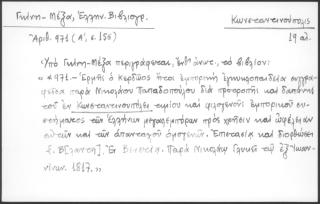 Γκίνη - Μέξα, Ελλην. Βιβλιογρ.
Κωνσταντινούπολις
Ἀριθ. 971 (Α', σ. 155)
19 αἰ.
Ὑπὸ Γκίνη-Μέξα περιγράφεται, ἔνθ' ἄνωτ., τὸ βιβλίον:
"971.- Ἑρμῆς ὁ Κερδῷος ἤτοι ἐμπορικὴ ἐγκυκλοπαιδεία συγγρα-
φεῖσα παρὰ Νικολάου Παπαδοπούλου διὰ προτροπῆς καὶ δαπάνης
τοῦ ἐν Κωνσταντινουπόλει τιμίου καὶ φιλογενοῦς ἐμπορικοῦ συ-
στήματος τῶν Ἑλλήνων μεγαλεμπόρων πρὸς χρῆσιν καὶ ὠφέλειαν
αὐτῶν καὶ τῶν ἁπανταχοῦ ὁμογενῶν. Ἐπιστασίᾳ καὶ διορθώσει
Σ. Β[λαντῆ]. Ἐν Βενετίᾳ. Παρὰ Νικολάῳ Γλυκεῖ τῷ ἐξ Ἰωαν-
νίνων. 1817."